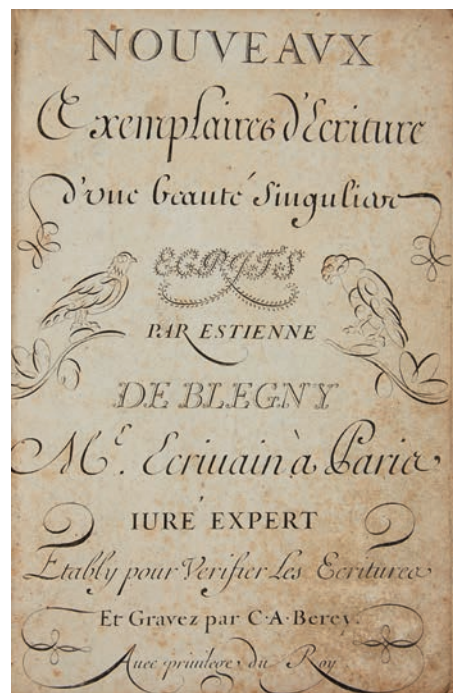 NOUVEAVX
Exemplaires d'Ecriture
d'vne beauté Singuliere
ECRITS
PAR ESTIENNE
DE BLEGNY
Me. Ecriuain à Paris
IURÉ EXPERT
Etably pour Verifier Les Ecritures
Et Gravez par C·A·Berey.
Auec priuilege du Roy